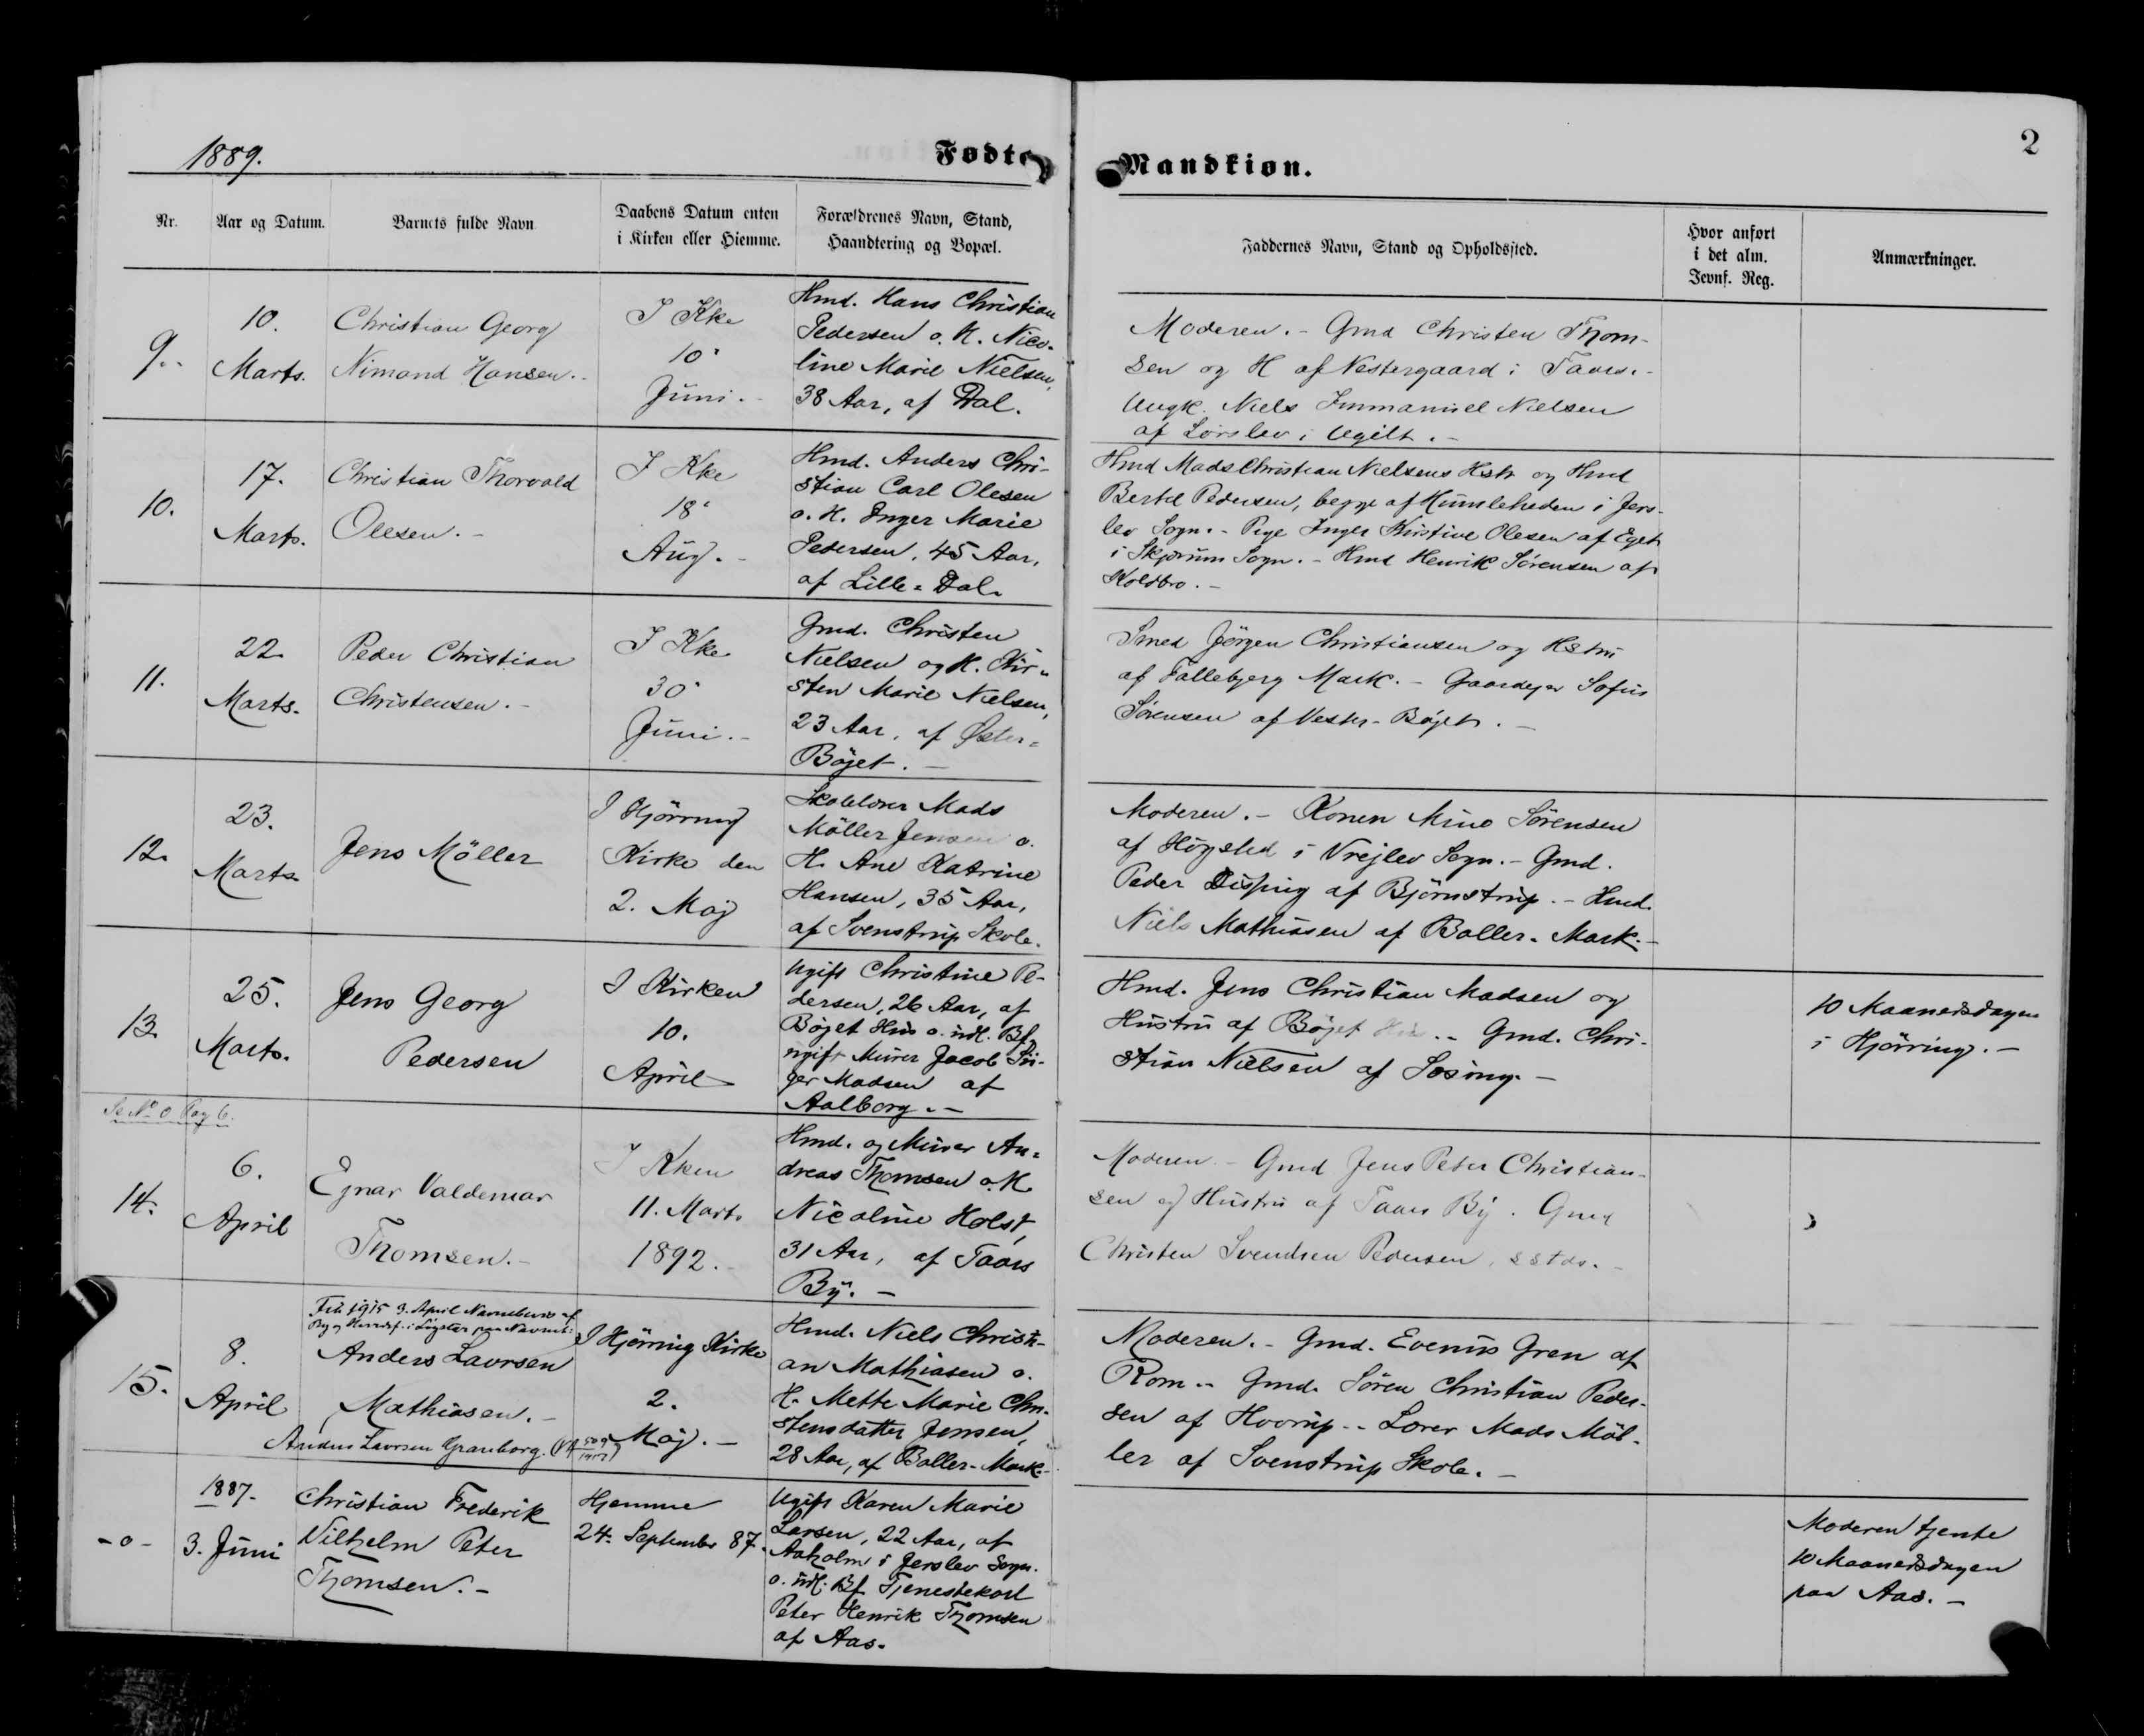 1889.
Fødte
Mandkiøn.
2
Nr.
Aar og Datum.
Barnets fulde Navn
Daabens Datum enten
i Kirken eller Hiemme.
Forældrenes Navn, Stand,
Haandtering og Bopæl.
Faddernes Navn, Stand og Opholdssted.
Hvor anført
i det alm.
Jevnf. Reg.
Anmærkninger.
9.
10.
Marts.
Christian Georg
Nimand Hansen.-
I Kke
10.
Juni.-
Hmd. Hans Christian
Pedersen o. H. Nico-
line Marie Nielsen,
38 Aar, af Dal.
Moderen.- Gmd Christen Thom-
sen og H af Vestergaard i Taars.-
Ungk. Niels Immanuel Nielsen
af Lørslev i Ugilt.-
10.
17.
Marts.
Christian Thorvald
Olesen.-
I Kke
18.
Aug.-
Hmd. Anders Chri-
stian Carl Olesen
o. H. Inger Marie
Pedersen, 45 Aar,
af Lille-Dal.
Hmd Mads Christian Nielsens Hstr og Hmd
Bertel Pedersen, begge af Humleheden i Jers-
lev Sogn.- Pige Inger Kirstine Olesen af Eget
i Skjærum Sogn.- Hmd Henrik Sørensen af
Koldbro.-
11.
22
Marts.
Peder Christian
Christensen.-
I Kke
30.
Juni.-
Gmd. Christen
Nielsen og H. Kir-
sten Marie Nielsen,
23 Aar, af Øster-
Böjet.-
Smed Jörgen Christiansen og Hstru
af Fallebjerg Mark.- Gaardejer Sofus
Sörensen af Vester-Böjet.-
12.
23.
Marts
Jens Möller
I Hjörring
Kirke den
2. Maj
Skolelærer Mads
Möller Jensen o.
H. Ane Katrine
Hansen, 35 Aar,
af Svenstrup Skole.
Moderen.- Konen Mine Sörensen
af Högsted i Vrejlev Sogn.- Gmd.
Peder af Björnstrup.- Hmd.
Niels Mathiasen af Baller-Mark.-
13.
25.
Marts.
Jens Georg
Pedersen
I Kirken
10.
April
Ugift Christine Pe-
dersen, 26 Aar, af
Böjet Hus o. udl. Bf.
ugift Murer Jacob
Madsen af
Aalborg.-
Hmd. Jens Christian Madsen og
Hustru af Böjet Hus.- Gmd. Chri-
stian Nielsen af Søsing.-
10 Maanedsdagen
i Hjörring.-
Se No 0 Pag 6.
14.
6.
April
Ejnar Valdemar
Thomsen.-
I Kken
11. Marts
1892.
Hmd. og Murer An-
dreas Thomsen o. H.
Nicoline Holst,
31 Aar, af Taars
By.-
Moderen - Gmd Jens Peter Christian-
sen og Hustru af Taars By. Gmd
Christen Svendsen Pedersen, sstds.-
15.
8.
April
1915 9. April Navnebevis af
Anders Lavrsen
Mathiasen.-
Anders Lavrsen Granborg.
I Hjörring Kirke
2.
Maj.-
Hmd. Niels Christi-
an Mathiasen o.
H. Mette Marie Chri-
stensdatter Jensen,
28 Aar, af Baller-Mark.-
Moderen.- Gmd. Evenus Gren af
Rom.- Gmd. Sören Christian Peder-
sen af Hvorup.- Lærer Mads Möl-
ler af Svenstrup Skole.-
-0-
1887.
3. Juni
Christian Frederik
Vilhelm Peter
Thomsen.-
Hjemme
24. September 87.
Ugift Karen Marie
Larsen, 22 Aar, af
Aaholm i Jerslev Sogn
o. udl. Bf Tjenestekarl
Peter Henrik Thomsen
af Aas.
Moderen tjente
10 Maanedsdagen
paa Aas.-